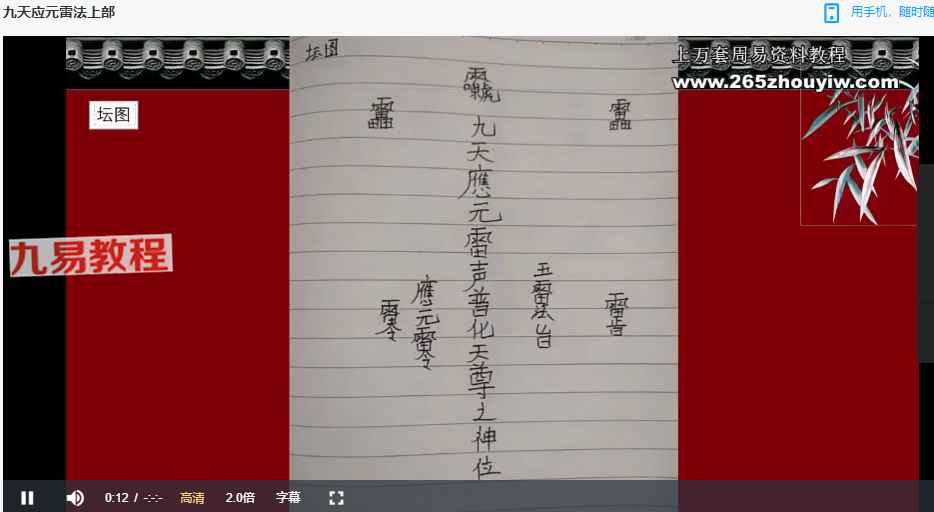 九天应元雷法上部
用手机，随时随
坛图
坛图
上万套周易资料教程
www.265zhouyiw.com
九易教程
九天應元雷声普化天尊之神位
應元雷令
五雷法台
0:12 / -:-:-
高清
2.0倍
字幕